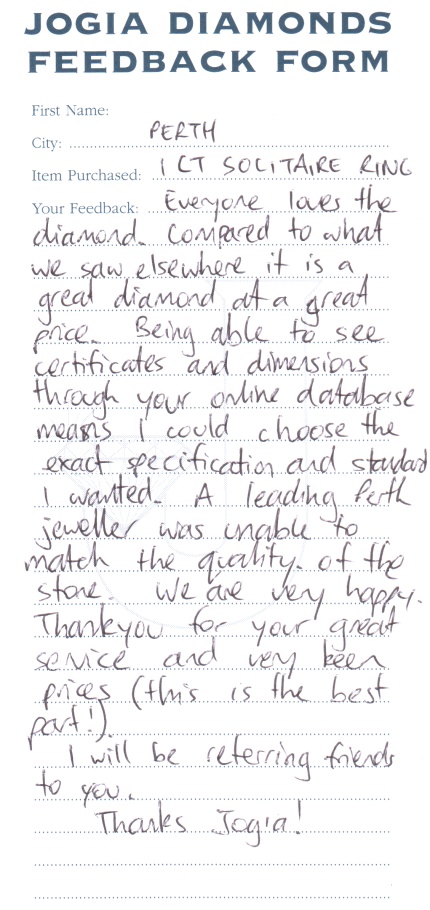 JOGIA DIAMONDS
FEEDBACK FORM
First Name:
City: PERTH
Item Purchased: 1 CT SOLITAIRE RING
Your Feedback: Everyone loves the
diamond. Compared to what
we saw elsewhere it is a
great diamond at a great
price. Being able to see
certificates and dimensions
through your online database
means I could choose the
exact specification and standard
I wanted. A leading Perth
jeweller was unable to
match the quality. of the
stone. We are very happy.
Thankyou for your great
service and very keen
prices (this is the best
part!).
I will be referring friends
to you.
Thanks Jogia!